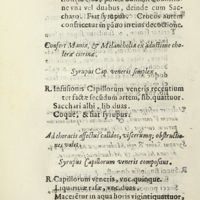 vel duabus, deinde cum Sac-
charo. Fiat syrupus. Crocus autem
conficitur in panno in fine decoctionis.
Confert Maniæ, & Melancholiæ ex adustione cho-
leræ citrinæ.
Syrupus Cap. veneris simplex.
R. Infusionis Capillorum veneris recentium
ter factæ secundum artem, lib. quattuor
Sacchari albi, lib. duas.
Coque, & fiat syrupus.
Ad thoracis affectus calidos, viscerumq; obstructio-
nes valet.
Syrupus Capillorum veneris compositus.
R. Capillorum veneris, unc. quinque.
Liquiritiæ rasæ, unc. duas.
Macerentur in aqua horis vigintiquattuor,